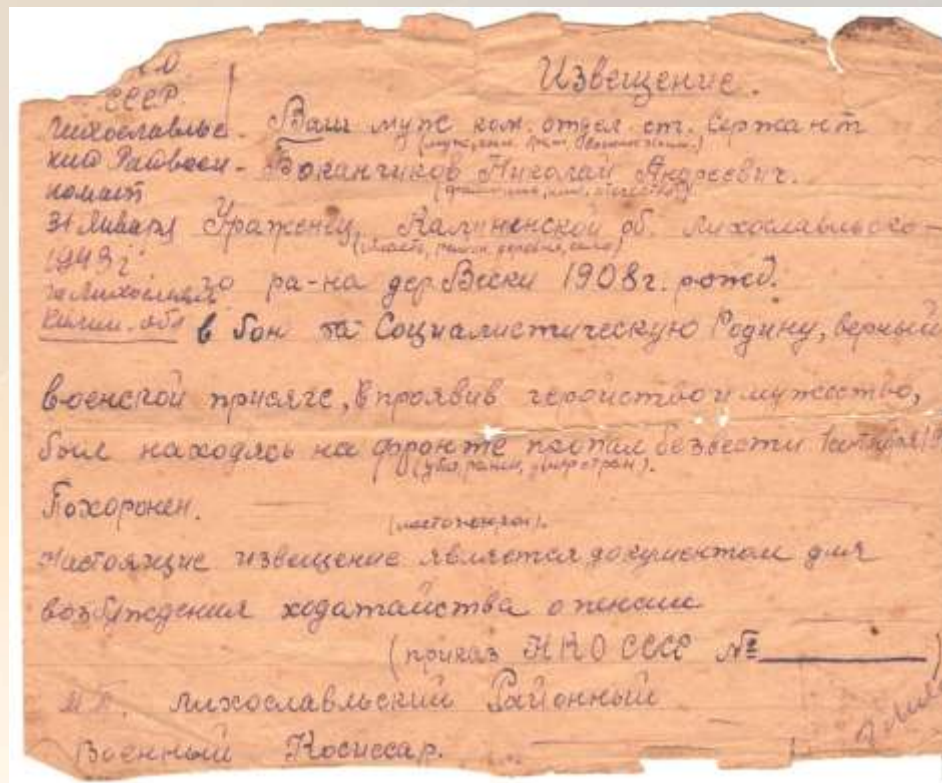 К.О.
СССР.
Лихославльс-
кий Райвоен-
комат
31 Января
1943г
г Лихославль
Калин. обл
Извещение.
Ваш муж ком. отдел. ст. Сержант
Боканчиков Николай Андреевич.
(фамилия, имя, отчество)
Ураженец, Калиненской об. Лихославльско-
(область, район, деревня, село)
го ра-на дер Вески 1908г. рожд.
в бои за Социалистическую Родину, верный
военской присяге, проявив геройство и мужество,
был находясь на фронте пропал безвести
Похоронен.
Настоящие извещение является документом для
возбуждения ходатайства о пенсии
(приказ НКО СССР №
М.П. Лихославльский Районный
Военный Комиссар.